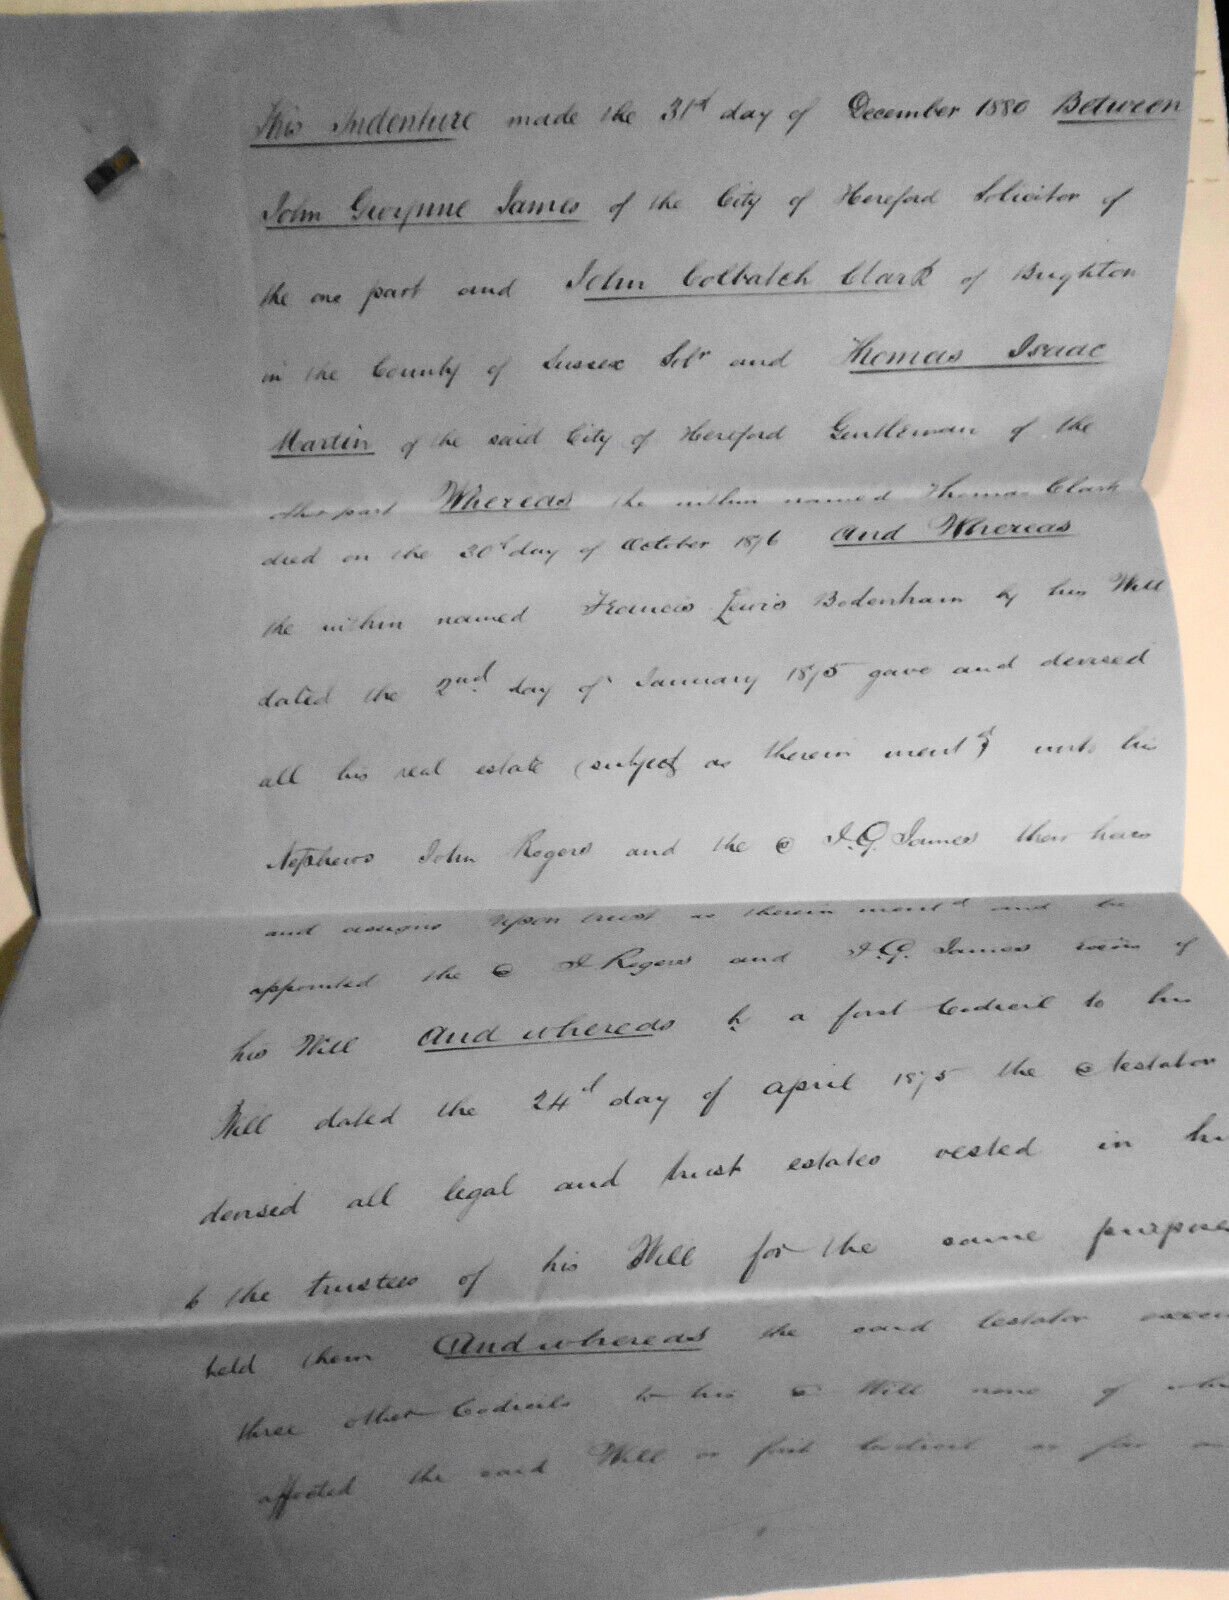 This Indenture made the 31st day of December 1880 Between
John Gwynne James of the City of Hereford Solicitor of
the one part and John Colbatch Clark of Brighton
in the County of Sussex Solr and Thomas Isaac
Martin of the said City of Hereford Gentleman of the
other part Whereas the within named Thomas Clark
died on the 30th day of October 1876 And Whereas
the within named Francis Lewis Bodenham by his Will
dated the 2nd day of January 1875 gave and devised
all his real estate (subject as therein mentd) unto his
Nephews John Rogers and the J.G. James their heirs
and assigns upon trust as therein mentd and he
appointed the J Rogers and J.G. James of
his Will And whereas by a first Codicil to his
Will dated the 24th day of april 1875 the testator
devised all legal and trust estates vested in
to the trustees of his Will for the same
held them And whereas the said testator
three other Codicils to his Will none of
affected the said Will or first Codicil so far